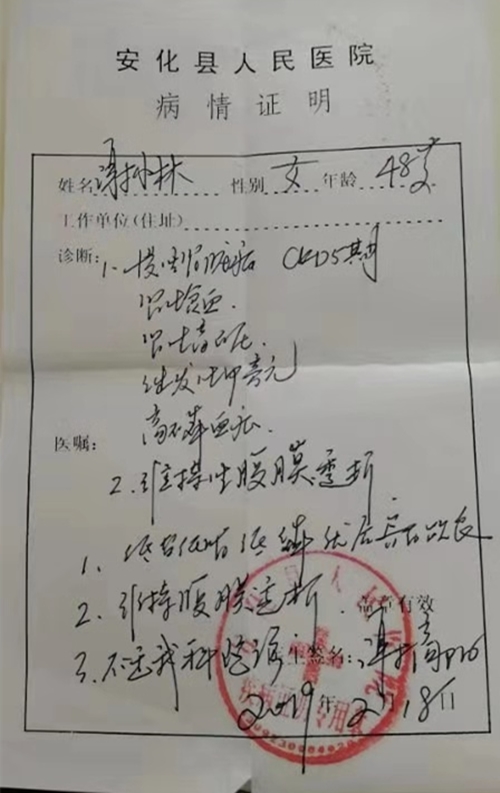 安化县人民医院
病情证明
姓名 性别 女 年龄 48岁
工作单位(住址)
诊断: 1. 慢性肾脏病 CKD5期
肾性贫血
肾性高血压
继发性甲旁亢
高磷血症
医嘱:
2. 维持性腹膜透析
1. 低盐低脂低磷优质蛋白饮食
2. 维持腹膜透析 盖章有效
3. 不适我科随诊 医生签名:
2019年2月18日